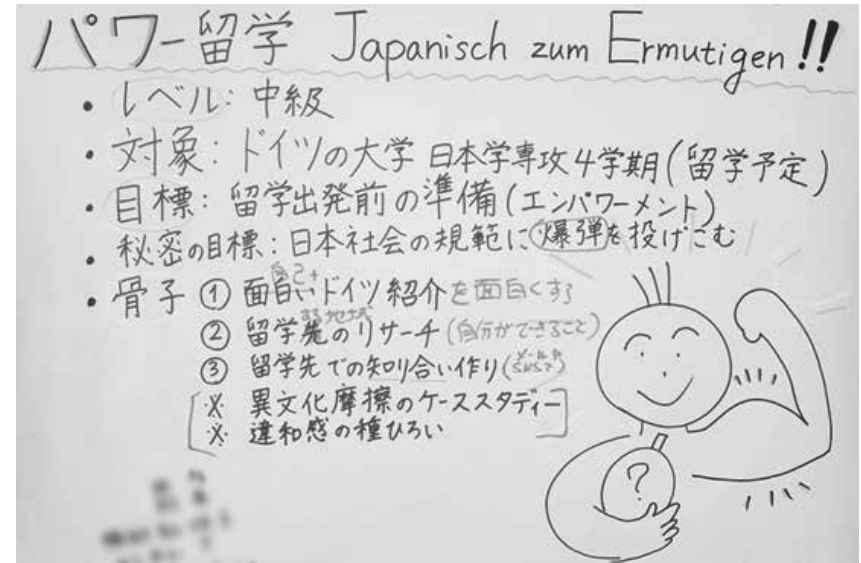 パワー留学 Japanisch zum Ermutigen!!
・レベル: 中級
・対象: ドイツの大学 日本学専攻4学期(留学予定)
・目標: 留学出発前の準備(エンパワーメント)
・秘密の目標: 日本社会の規範に爆弾を投げこむ
自己+
・骨子 ① 面白いドイツ紹介を面白くする
する地域
② 留学先のリサーチ(自分ができること)
③ 留学先での知り合い作り(メールやSNSで)
※ 異文化摩擦のケーススタディー
※ 違和感の種ひろい
?